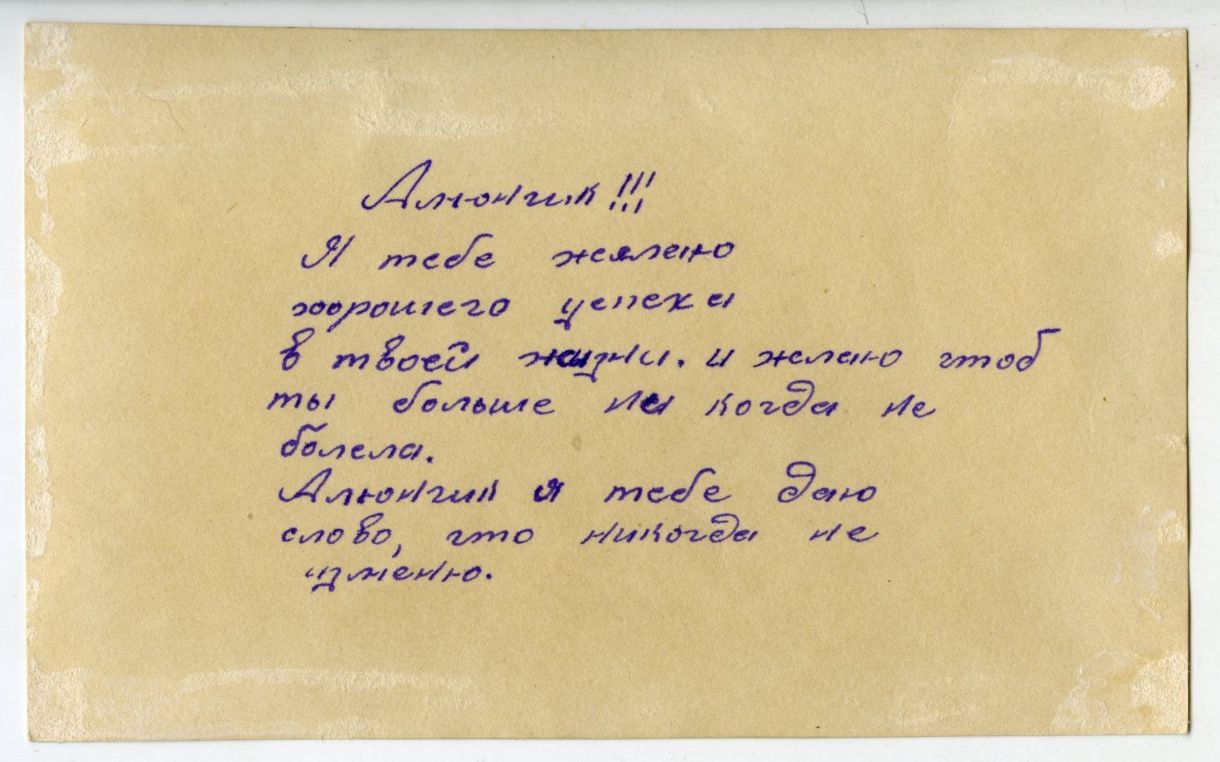 Алюнчик!!!
Я тебе жялаю
хорошего успеха
в твоей жизни. и желаю чтоб
ты больше ни когда не
болела.
Алюнчик я тебе даю
слово, что никогда не
изменю.